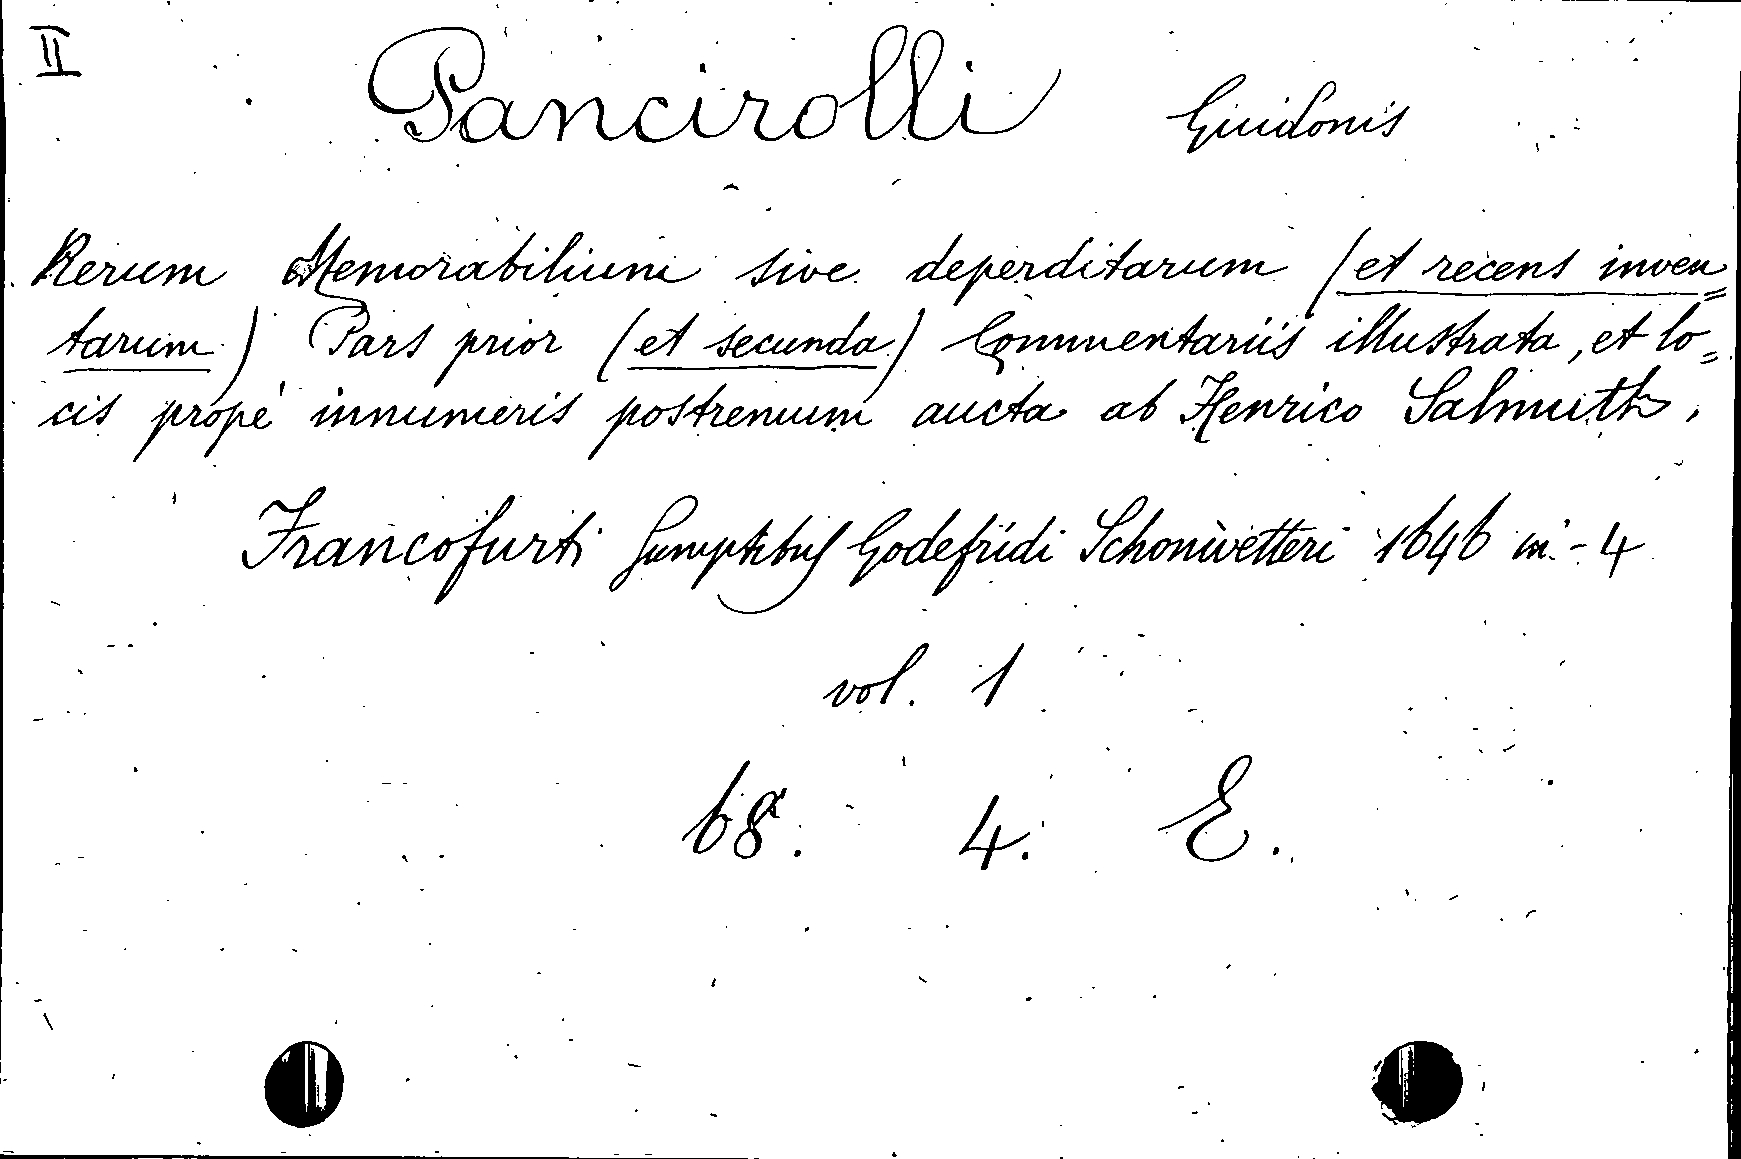 II
Pancirolli Guidonis
Rerum Memorabilium sive deperditarum (et recens inven=
tarum) Pars prior (et secunda) Commentariis illustrata, et lo=
cis propé innumeris postremum aucta ab Henrico Salmuth.
Francofurti Sumptibus Godefridi Schonwetteri 1646 in-4
vol. 1
68. 4. E.